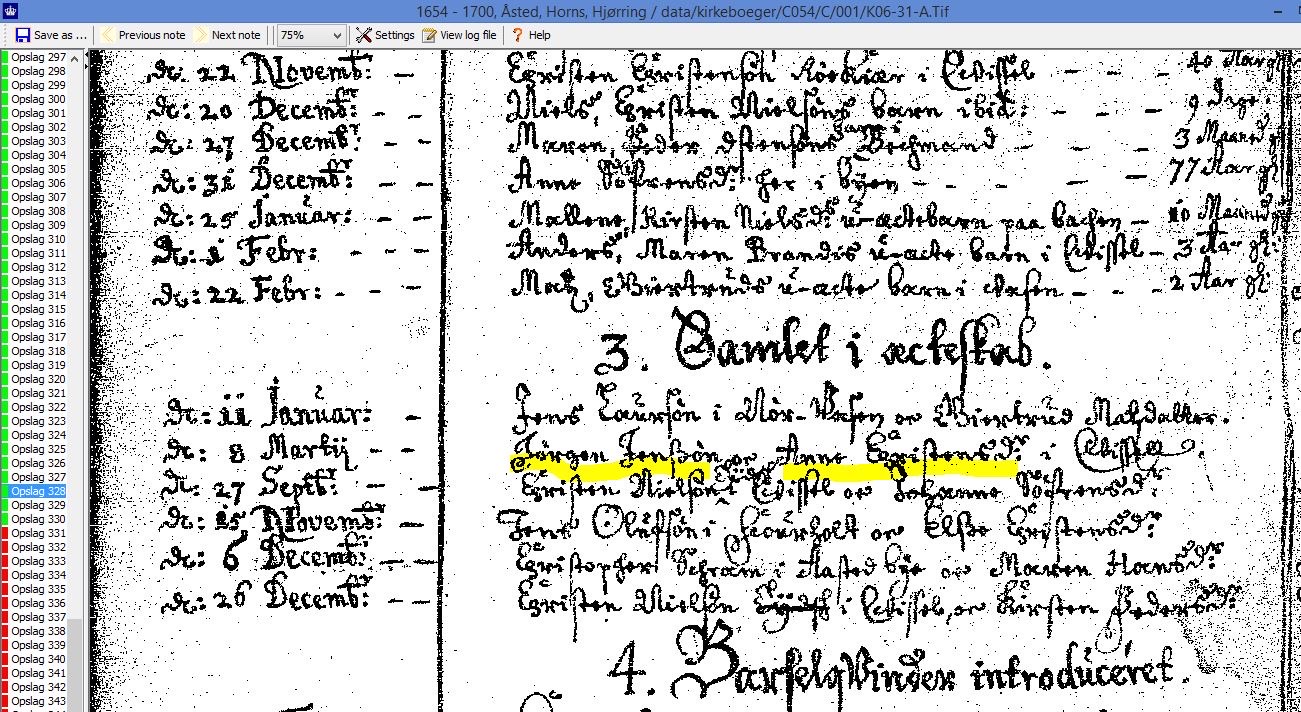 1654 - 1700, Åsted, Horns, Hjørring / data/kirkeboeger/C054/C/001/K06-31-A.Tif
Save as ... Previous note Next note 75% Settings View log file Help
Opslag 297
Opslag 298
Opslag 299
Opslag 300
Opslag 301
Opslag 302
Opslag 303
Opslag 304
Opslag 305
Opslag 306
Opslag 307
Opslag 308
Opslag 309
Opslag 310
Opslag 311
Opslag 312
Opslag 313
Opslag 314
Opslag 315
Opslag 316
Opslag 317
Opslag 318
Opslag 319
Opslag 320
Opslag 321
Opslag 322
Opslag 323
Opslag 324
Opslag 325
Opslag 326
Opslag 327
Opslag 328
Opslag 329
Opslag 330
Opslag 331
Opslag 332
Opslag 333
Opslag 334
Opslag 335
Opslag 336
Opslag 337
Opslag 338
Opslag 339
Opslag 340
Opslag 341
Opslag 342
Opslag 343
d: 22 Novemb: - Christen Christensøn i - - - 40 Aar
d: 20 Decemb: - - Niels, Christen Nielsøns barn ibid: - - - 9 Dage
d: 27 Decemb: - - Maren, Peder - 3 Maaned
d: 31 Decemb: - - Anne Søfrensd: her i byen - - - - 77 Aar gl
d: 25 Januar: - - Mallene, Kirsten Nielsd: u-ægtebarn paa - 10 Maaned
d: 1 Febr: - - Anders, Maren Brandis u-ægte barn i - 3 Aar gl:
d: 22 Febr: - - - Matz, Giertruds u-ægte barn i - - - 2 Aar gl:
3. Samlet i ægteskab.
d: 11 Januar: - Jens Laursøn i Nør- oc Giertrud Matzdatter.
d: 8 Martij - - Jørgen Jensøn oc Anne Christensd: i
d: 27 Septb: - - Christen Nielsøn i oc Johanne Søfrensd:
d: 15 Novemb: - - Jens Olufsøn i oc Else Christensd:
d: 6 Decemb: - - Christopher Schram i Aasted bye oc Maren Hansd:
d: 26 Decemb: - - Christen Nielsøn i oc Kirsten Pedersd:
4. Barselqvinder introduceret.